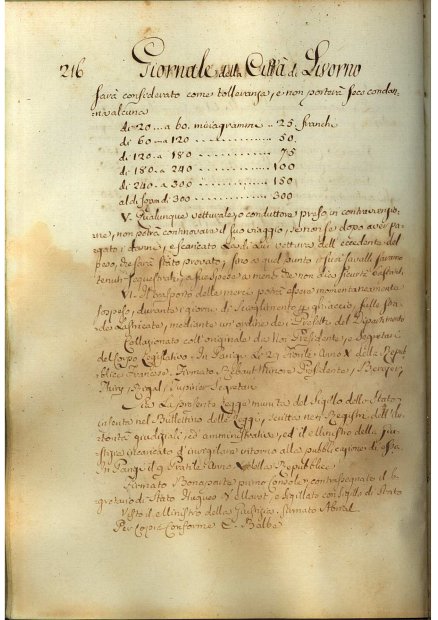 216 Giornale della Città di Livorno
sarà considerato come tolleranza, e non porterà seco condan-
na alcuna
di 20 .. a 60. miriagrammi .. 25 franchi
di 60 a 120 ............ 50.
di 120. a 180 ............ 75
di 180. a 240 ............ 100
di 240. a 300 ............ 150
al di sopra di 300 ............ 300
V. Qualunque vetturale, o conduttore preso in contravenzio-
ne, non potrà continovare il suo viaggio, se non se dopo aver pa-
gato i danni, e scaricato la di lui vettura dell'eccedente del
peso, che sarà stato provato, fino a quel punto i suoi cavalli saranno
tenuti sequestrati, a sue spese a meno che non dia
VI. Il trasporto delle merci potrà essere momentaneamente
sospeso, durante i giorni di scioglimento di ghiaccio, sulle stra-
de lastricate, mediante un ordine dei Prefetti del Dipartimento
Collazionato coll'originale da Noi Presidente, e Segretari
del Corpo Legislativo. In Parigi le 29 Floreale Anno X della Repub-
blica Francese. Firmato Presidente,
Segretari
Sia la presente Legge munita del Sigillo dello Stato,
inserita nel Bullettino delle Leggi, scritta nei Registri dell'Au-
torità giudiziali, ed amministrative, ed il Ministro della Giu-
stizia incaricato d'invigilare intorno alla pubblicazione di essa.
In Parigi il 9 Pratile Anno X della Repubblica
Firmato Bonaparte primo Console, contrassegnato il Se-
gretario di Stato Hugues B. Maret, e sigillato con sigillo di Stato
Visto il Ministro della Giustizia, firmato Abrial
Per Copia Conforme C. Balbe